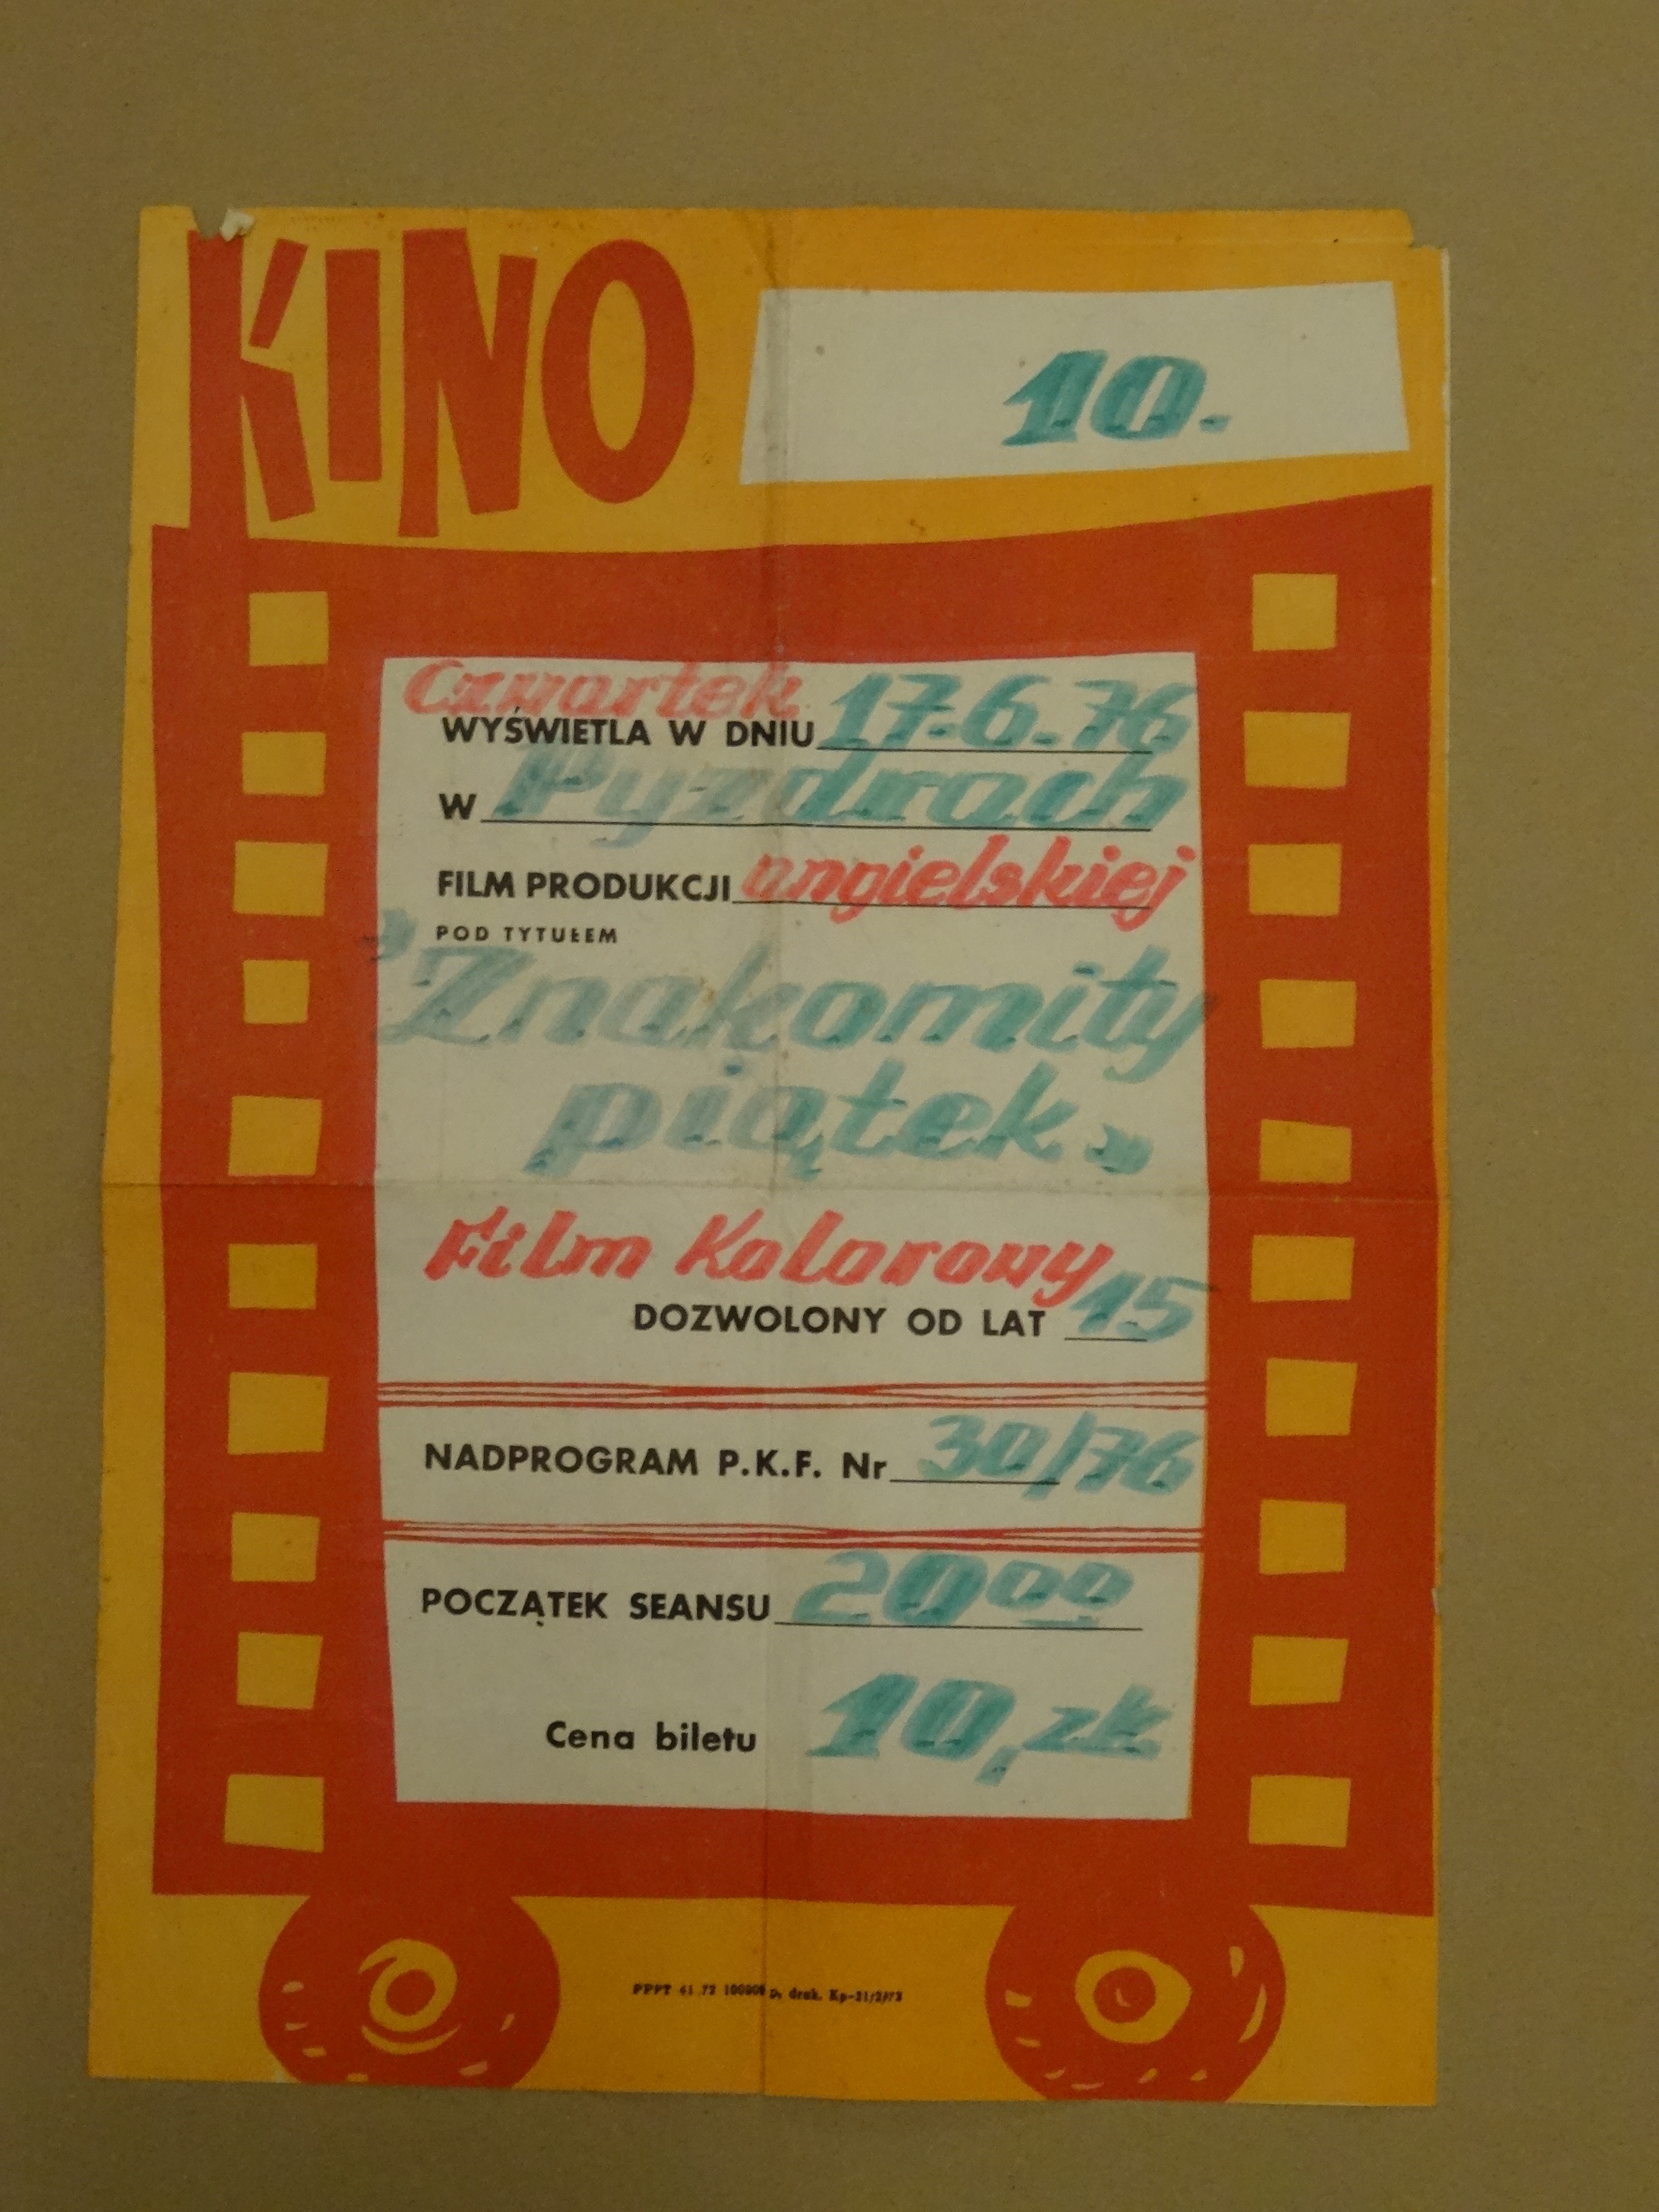 KINO 10.
Czwartek
WYŚWIETLA W DNIU 17.6.76
W Pyzdrach
FILM PRODUKCJI angielskiej
POD TYTUŁEM
"Znakomity
piątek"
Film Kolorowy
DOZWOLONY OD LAT 15
NADPROGRAM P.K.F. Nr 30/76
POCZĄTEK SEANSU 20 00
Cena biletu 10, zł
PPPT druk. Kp-31/2/73